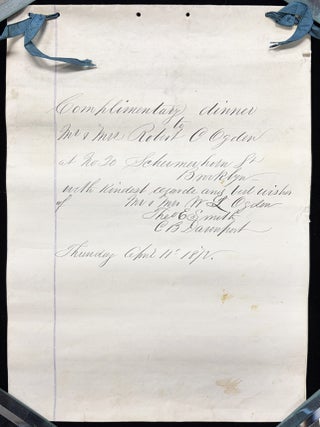 Complimentary dinner
to
Mr & Mrs Robert C Ogden
at No 20 Schermerhorn St
Brooklyn
with kindest regards and best wishes
of Mr & Mrs W L Ogden
Theo E Smith
C B Davenport
Thursday April 11th